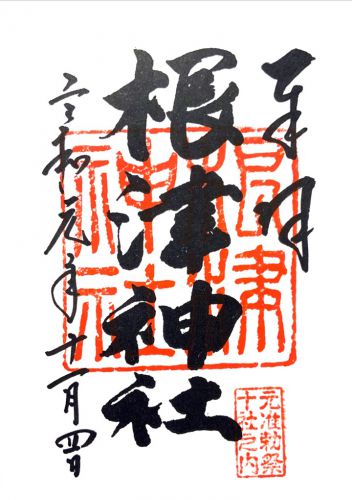 奉拝
根津神社
令和元年十一月四日
根津
神社
元准勅祭
十社之内